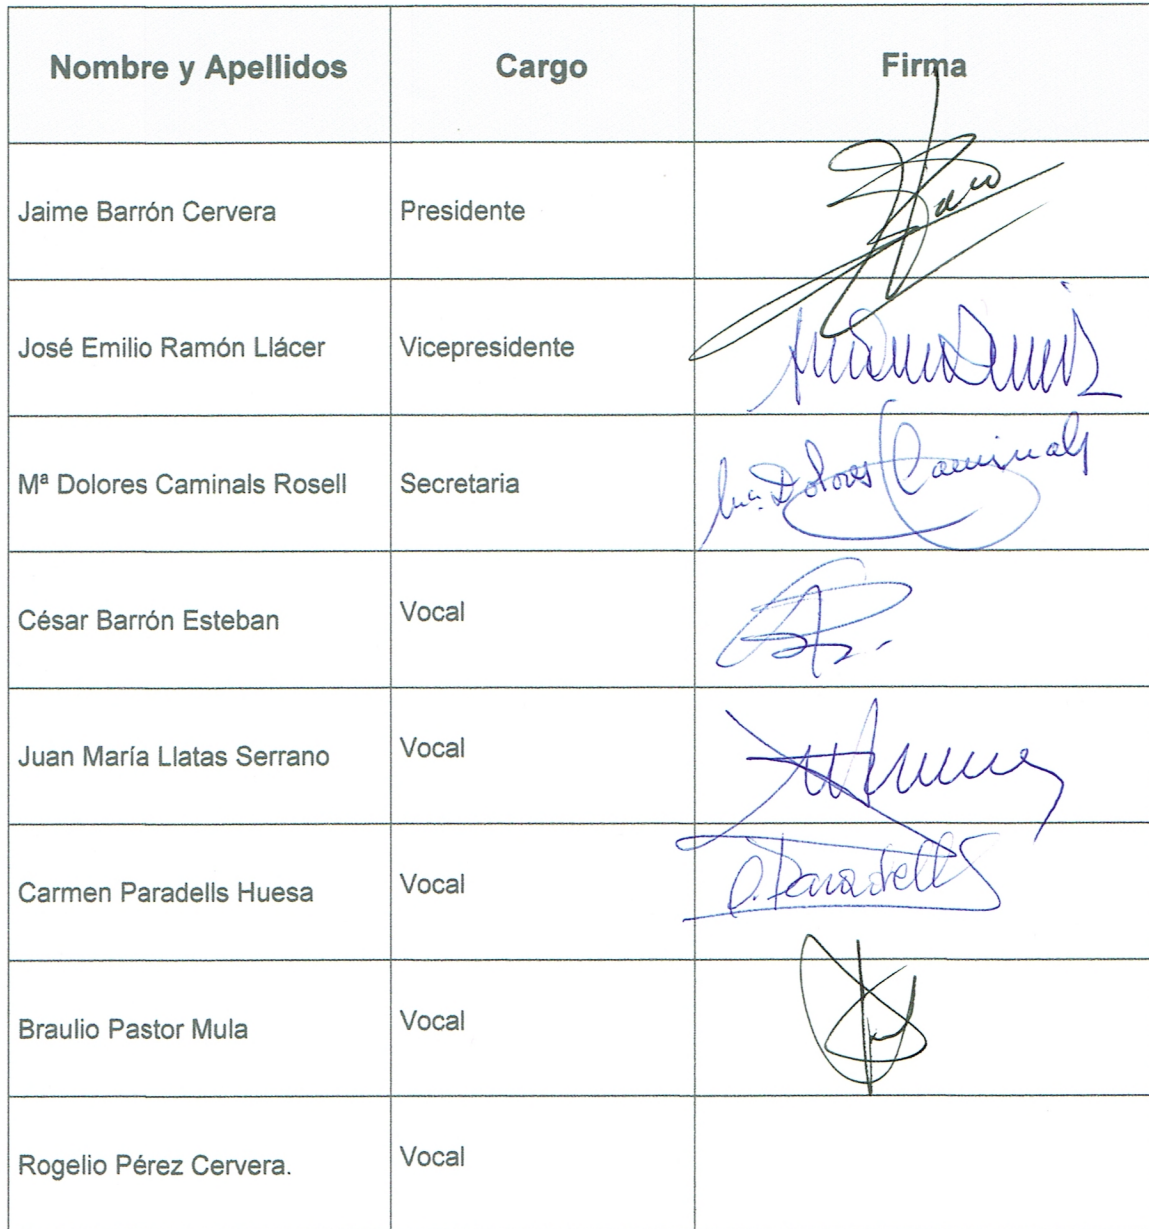 Nombre y Apellidos Cargo Firma
Jaime Barrón Cervera Presidente
José Emilio Ramón Llácer Vicepresidente
Mª Dolores Caminals Rosell Secretaria
Mª Dolores Caminals
César Barrón Esteban Vocal
Juan María Llatas Serrano Vocal
Carmen Paradells Huesa Vocal
C. Paradells
Braulio Pastor Mula Vocal
Rogelio Pérez Cervera. Vocal